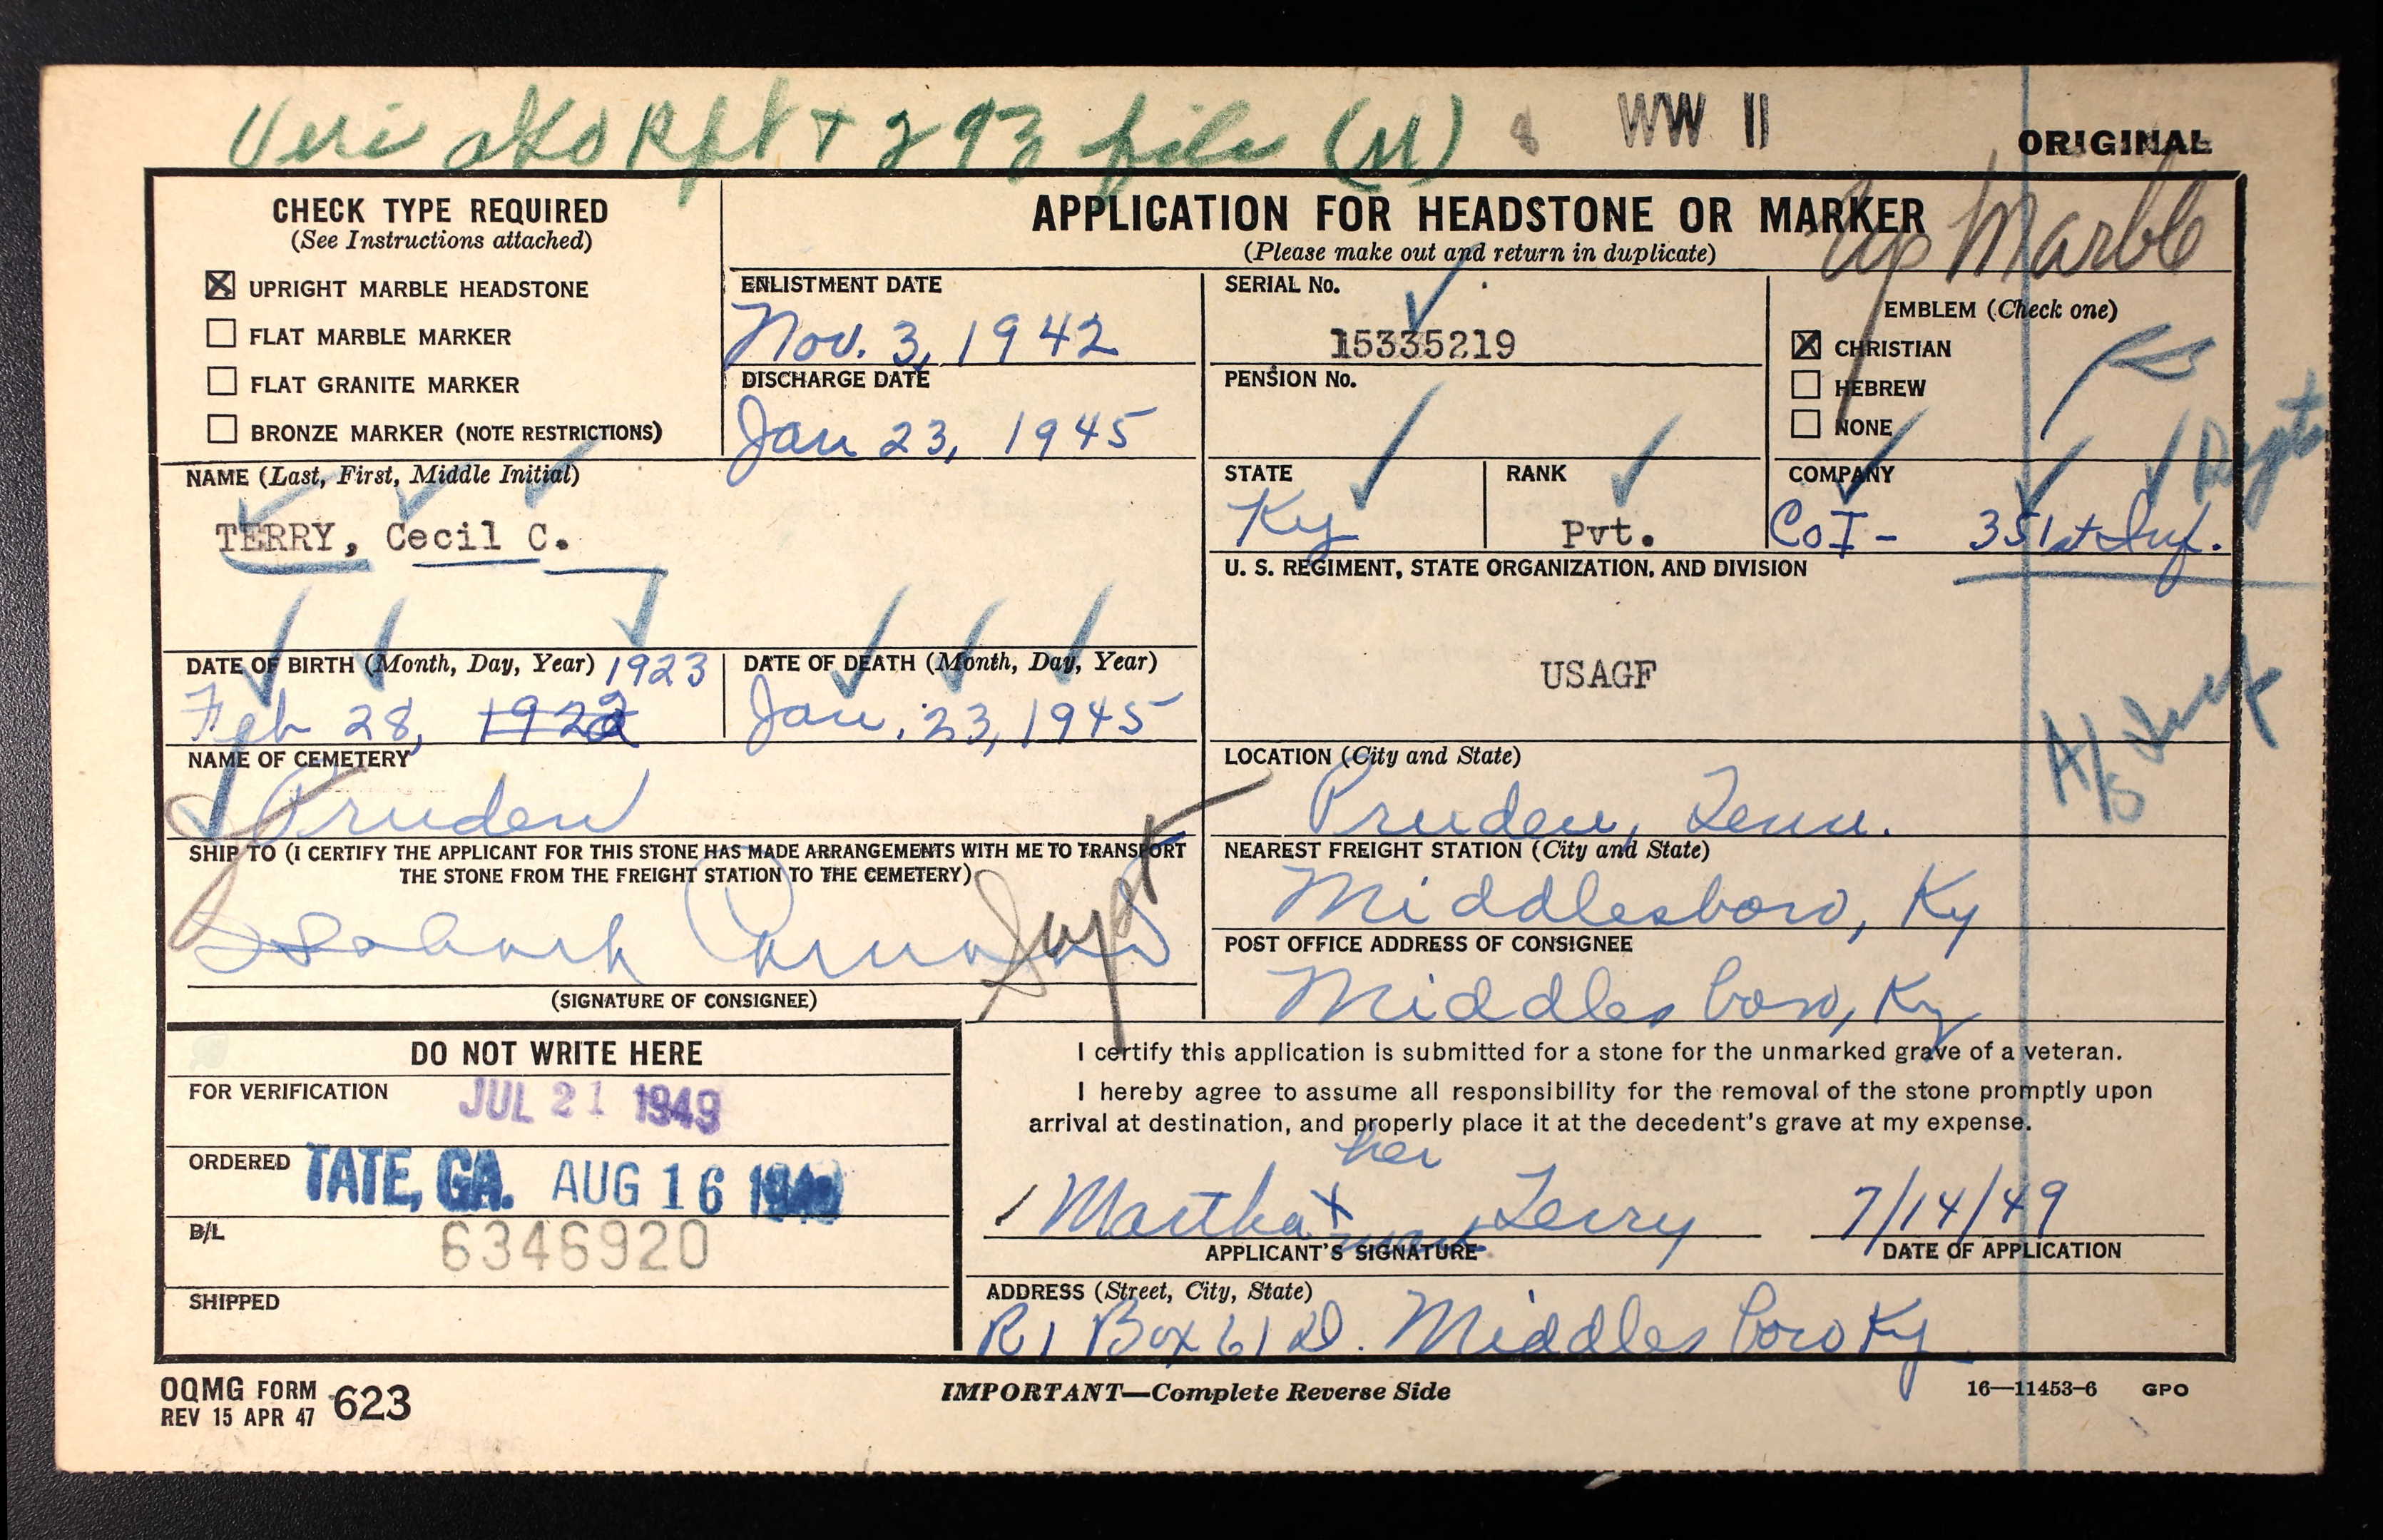 Veri Rpt + 293 file (M) WW II
ORIGINAL
CHECK TYPE REQUIRED
(See Instructions attached)
☒ UPRIGHT MARBLE HEADSTONE
☐ FLAT MARBLE MARKER
☐ FLAT GRANITE MARKER
☐ BRONZE MARKER (NOTE RESTRICTIONS)
APPLICATION FOR HEADSTONE OR MARKER
(Please make out and return in duplicate)
Up Marble
ENLISTMENT DATE
Nov. 3, 1942
DISCHARGE DATE
Jan 23, 1945
SERIAL No.
15335219
PENSION No.
EMBLEM (Check one)
☒ CHRISTIAN
☐ HEBREW
☐ NONE
NAME (Last, First, Middle Initial)
TERRY, Cecil C.
STATE
Ky
RANK
Pvt.
COMPANY
Co I - 351st Inf.
U. S. REGIMENT, STATE ORGANIZATION, AND DIVISION
USAGF
DATE OF BIRTH (Month, Day, Year) 1923
Feb 28, 1922
DATE OF DEATH (Month, Day, Year)
Jan. 23, 1945
NAME OF CEMETERY
Pruden
LOCATION (City and State)
Pruden, Tenn.
SHIP TO (I CERTIFY THE APPLICANT FOR THIS STONE HAS MADE ARRANGEMENTS WITH ME TO TRANSPORT
THE STONE FROM THE FREIGHT STATION TO THE CEMETERY)
(SIGNATURE OF CONSIGNEE)
NEAREST FREIGHT STATION (City and State)
Middlesboro, Ky
POST OFFICE ADDRESS OF CONSIGNEE
Middlesboro, Ky
DO NOT WRITE HERE
FOR VERIFICATION JUL 21 1949
ORDERED TATE, GA. AUG 16 1949
B/L 6346920
SHIPPED
I certify this application is submitted for a stone for the unmarked grave of a veteran.
I hereby agree to assume all responsibility for the removal of the stone promptly upon
arrival at destination, and properly place it at the decedent's grave at my expense.
her
Martha x Terry 7/14/49
mark
APPLICANT'S SIGNATURE DATE OF APPLICATION
ADDRESS (Street, City, State)
R 1 Box 61 D. Middlesboro Ky
OQMG FORM 623
REV 15 APR 47
IMPORTANT—Complete Reverse Side
16—11453-6 GPO